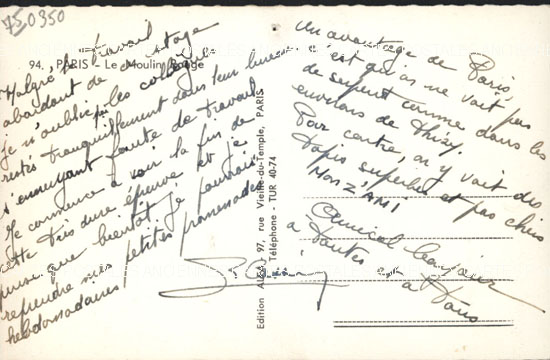 750350
94. PARIS - Le Moulin Rouge
Malgré le travail
abondant de ce stage
je n'oublie pas les collègues
restés tranquillement dans leur bureau
s'ennuyant faute de travail
Je commence à voir la fin de
cette très dure épreuve et je
pense que bientôt je pourrais
reprendre nos petites promenades
hebdomadaires
Edition 97, rue Vieille-du-Temple, PARIS
Téléphone - TUR 40-74
Un avantage de Paris,
c'est qu'on ne voit pas
de serpent comme dans les
environs de Thizy.
Par contre, on y voit des
tapis superbes et pas chers
MON Z'AMI
Amical bonjour
à toutes
et à tous